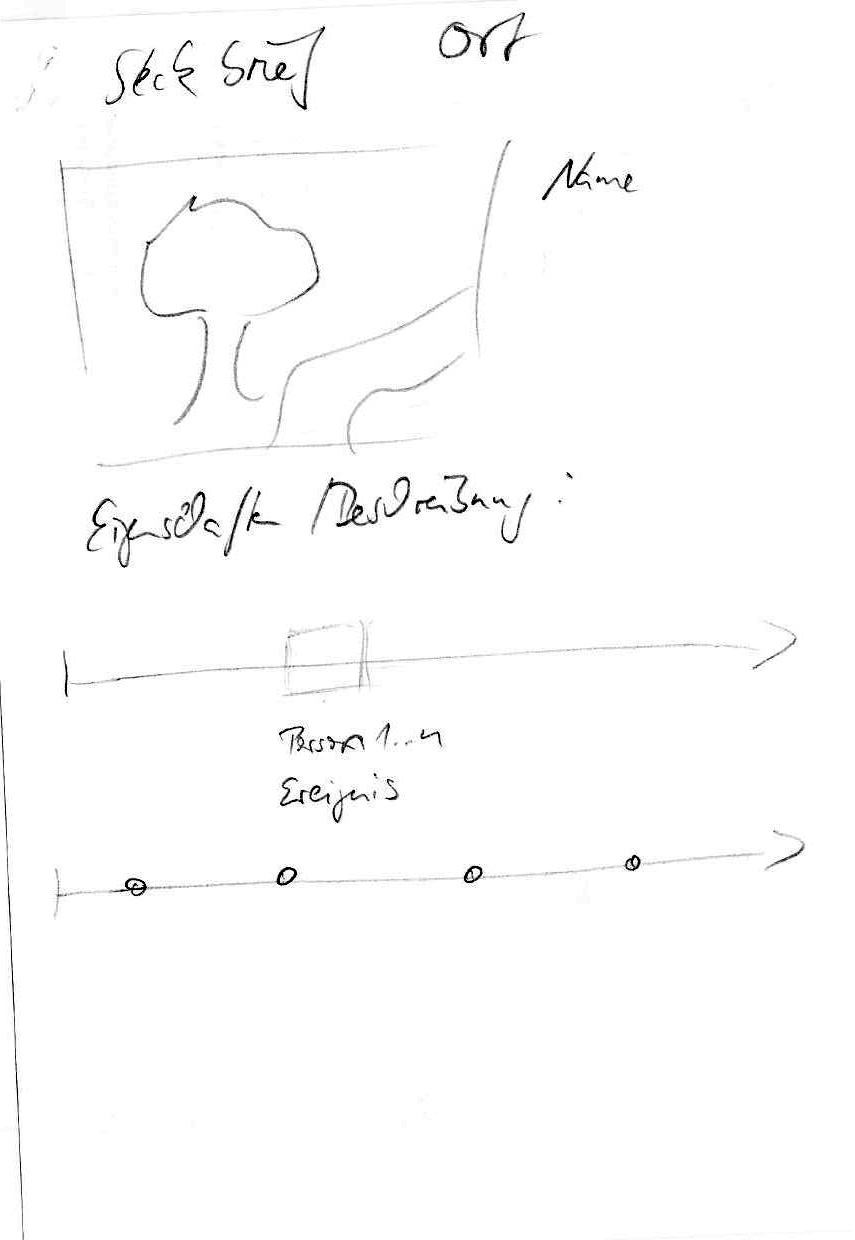 Steckbrief Ort
Name
Eigenschaften / Beschreibung :
Person 1..n
Ereignis